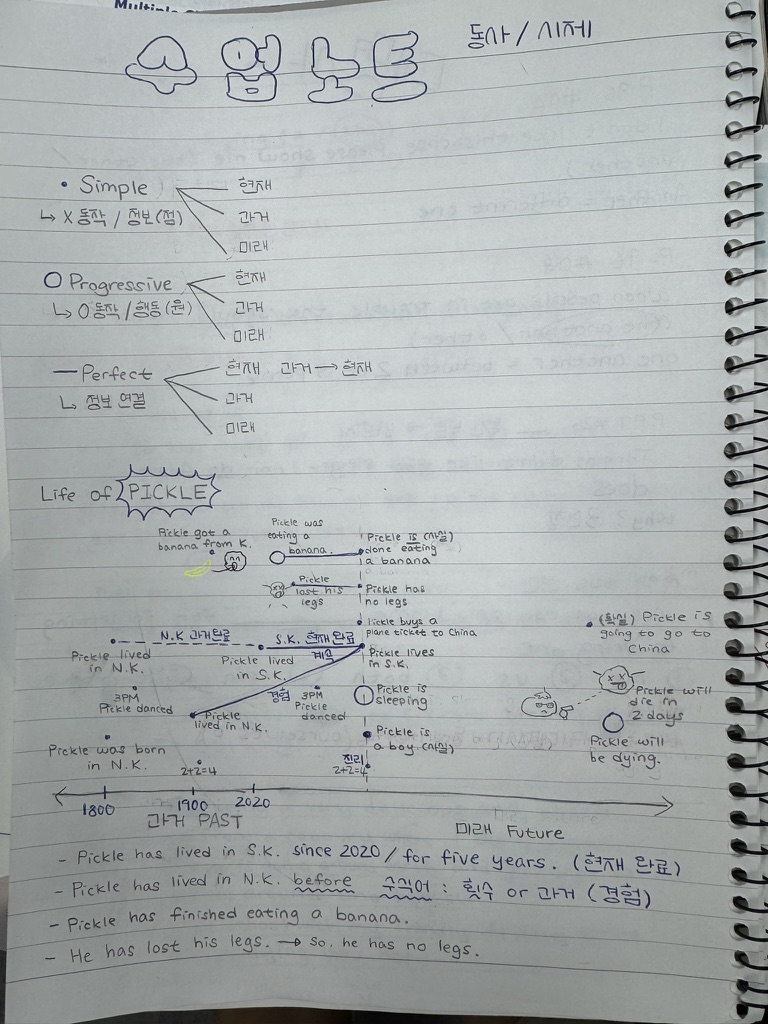 Multiple
수업 노트
동사 / 시제
• Simple
현재
↳ X 동작 / 정보 (점)
과거
미래
O Progressive
현재
↳ O 동작 / 행동 (원)
과거
미래
— Perfect
현재 과거 → 현재
↳ 정보 연결
과거
미래
Life of PICKLE
Pickle got a
banana from K.
Pickle was
eating a
banana.
Pickle is (사실)
done eating
a banana
Pickle
lost his
legs
Pickle has
no legs
Pickle buys a
plane ticket to China
(확실) Pickle is
going to go to
China
N.K 과거완료
S.K. 현재 완료
계속
Pickle lived
in N.K.
Pickle lived
in S.K.
Pickle lives
in S.K.
3PM
Pickle danced
경험
3PM
Pickle
danced
Pickle is
sleeping
Pickle
lived in N.K.
Pickle will
die in
2 days
Pickle will
be dying.
Pickle was born
in N.K.
Pickle is
a boy (사실)
2+2=4
진리
2+2=4
1800
1900
2020
과거 PAST
미래 Future
- Pickle has lived in S.K. since 2020 / for five years. (현재 완료)
- Pickle has lived in N.K. before 수식어 : 횟수 or 과거 (경험)
- Pickle has finished eating a banana.
- He has lost his legs. → so, he has no legs.